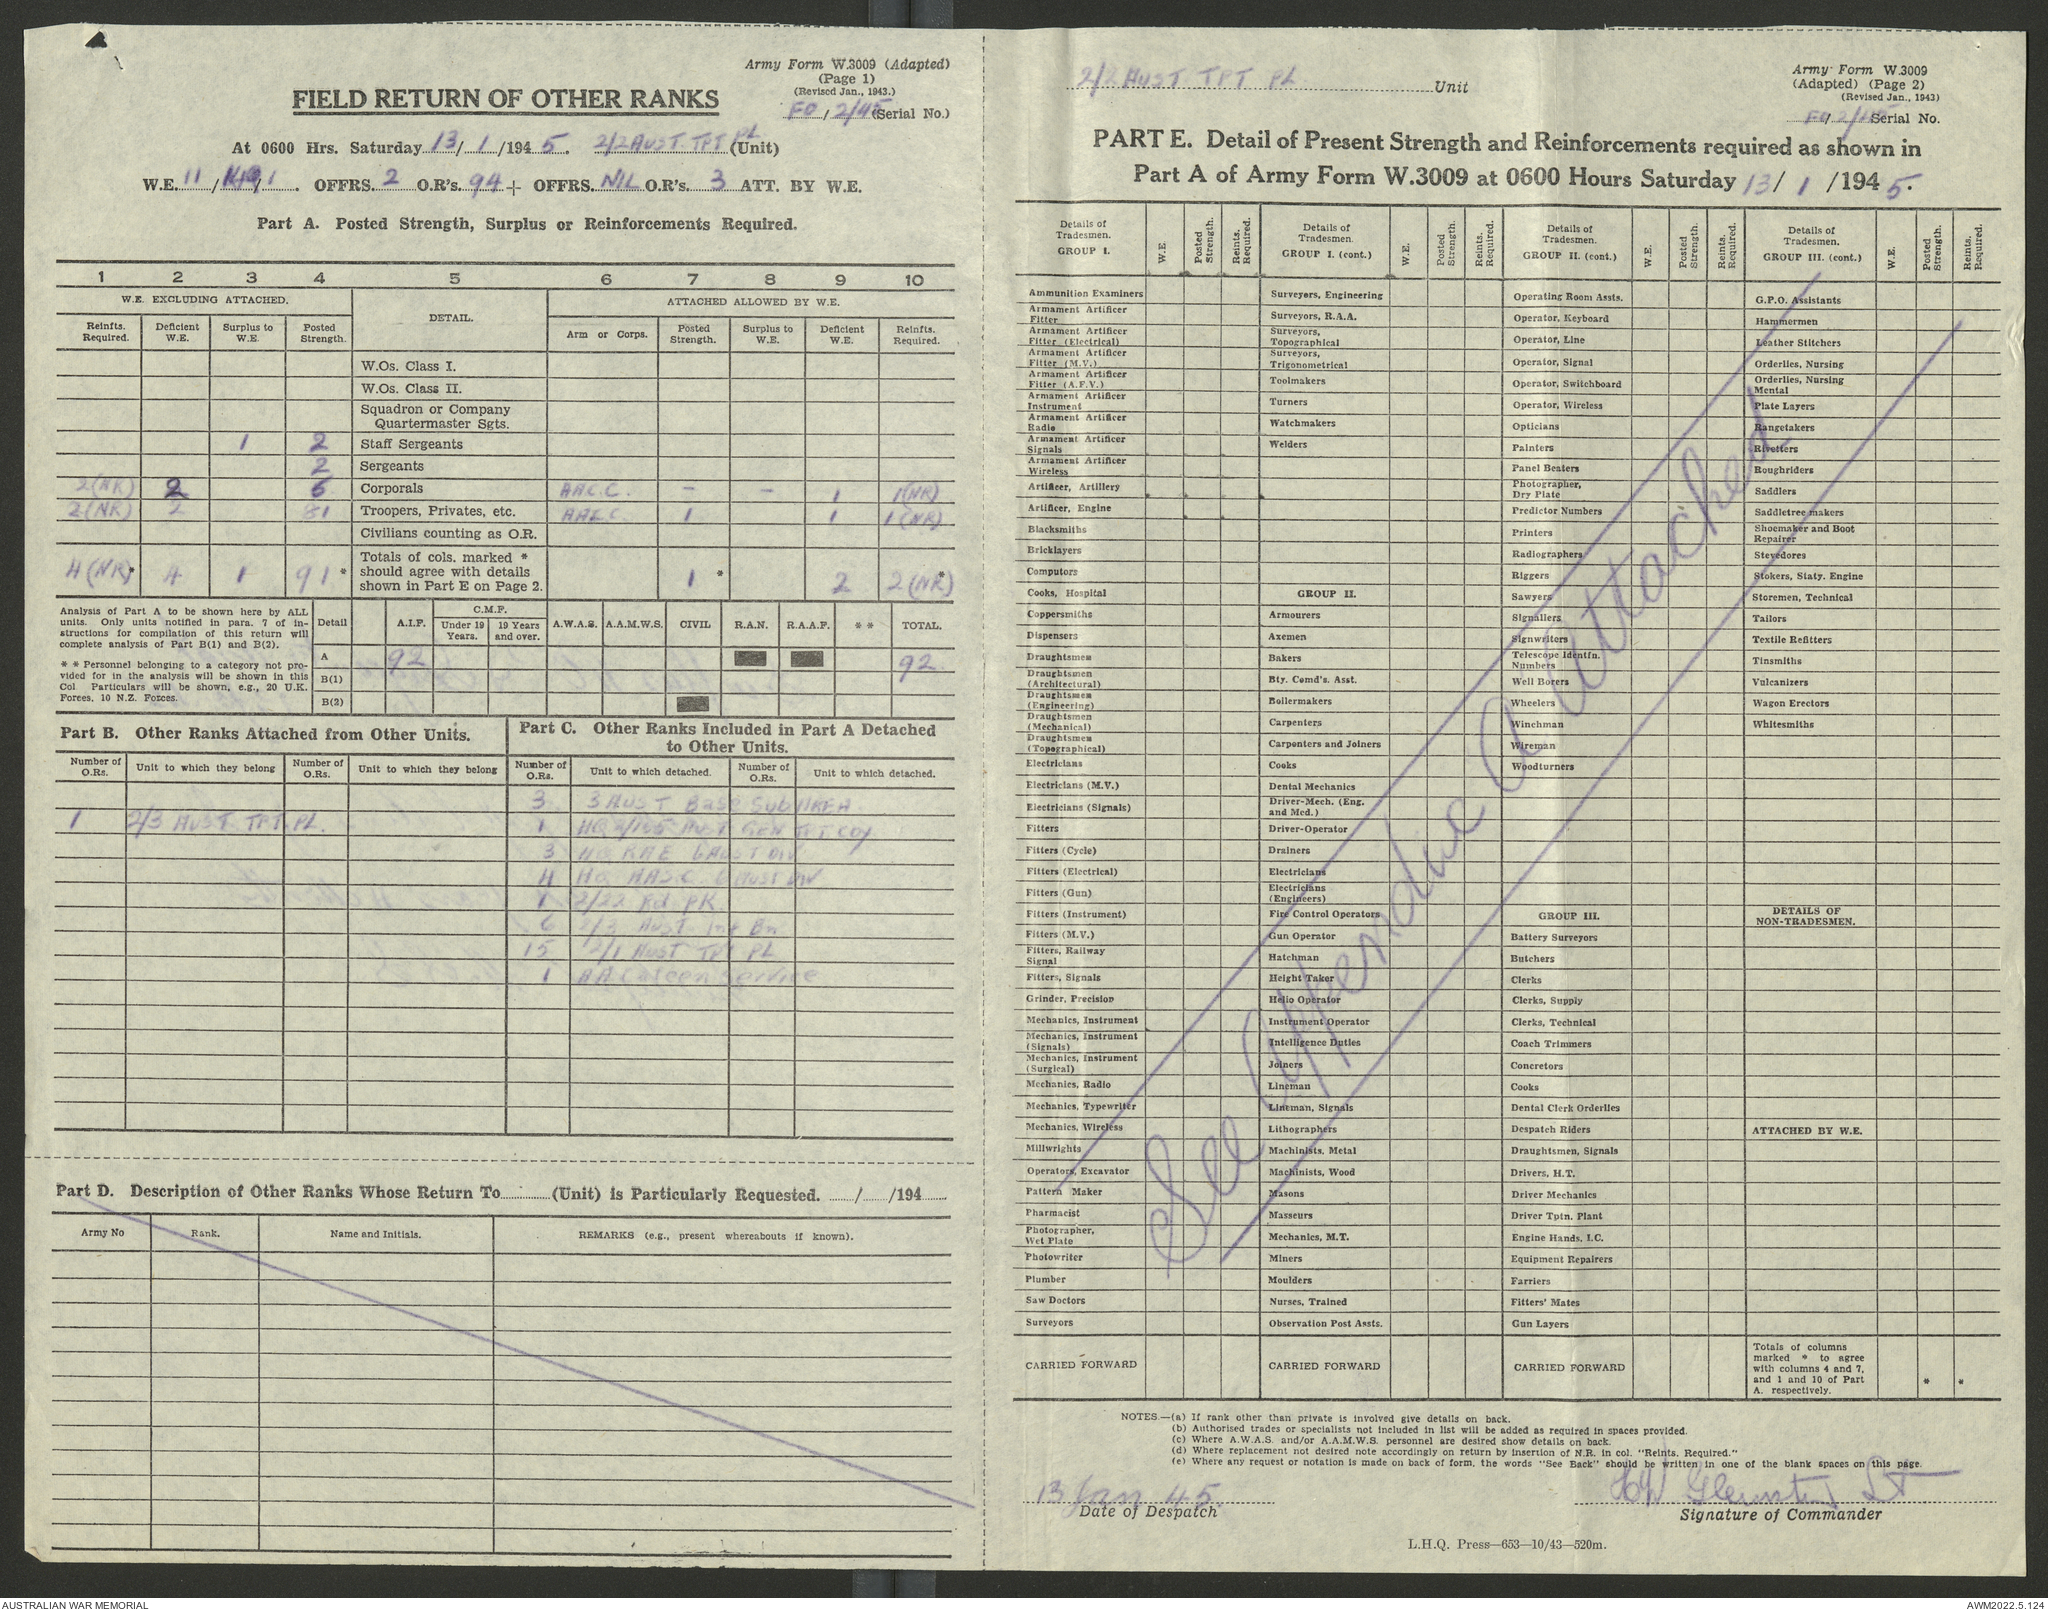 Army Form W.3009 (Adapted)
(Page 1)
(Revised Jan., 1943.)
FIELD RETURN OF OTHER RANKS
FO / 2/45 (Serial No.)
At 0600 Hrs. Saturday 13/ 1 /194 5. 2/2 AUST TPT PL (Unit)
W.E. 11 / / . OFFRS. 2 O.R's. 94 + OFFRS. NIL O.R's. 3 ATT. BY W.E.
Part A. Posted Strength, Surplus or Reinforcements Required.
1 2 3 4 5 6 7 8 9 10
W.E. EXCLUDING ATTACHED. DETAIL. ATTACHED ALLOWED BY W.E.
Reinfts. Required. Deficient W.E. Surplus to W.E. Posted Strength. Arm or Corps. Posted Strength. Surplus to W.E. Deficient W.E. Reinfts. Required.
W.Os. Class I.
W.Os. Class II.
Squadron or Company
Quartermaster Sgts.
1 2 Staff Sergeants
2 Sergeants
2 (NR) 2 6 Corporals A.A.C.C. - - 1 1 (NR)
2 (NR) 2 81 Troopers, Privates, etc. 1 1 1 (NR)
Civilians counting as O.R.
Totals of cols. marked *
4 (NR) * 4 1 91 * should agree with details 1 * 2 2 (NR) *
shown in Part E on Page 2.
Analysis of Part A to be shown here by ALL
units. Only units notified in para. 7 of in-
structions for compilation of this return will
complete analysis of Part B(1) and B(2).
* * Personnel belonging to a category not pro-
vided for in the analysis will be shown in this
Col. Particulars will be shown, e.g., 20 U.K.
Forces, 10 N.Z. Forces.
Detail A.I.F. C.M.F. Under 19 Years. 19 Years and over. A.W.A.S. A.A.M.W.S. CIVIL R.A.N. R.A.A.F. * * TOTAL.
A 92 92
B(1)
B(2)
Part B. Other Ranks Attached from Other Units.
Part C. Other Ranks Included in Part A Detached
to Other Units.
Number of O.Rs. Unit to which they belong Number of O.Rs. Unit to which they belong Number of O.Rs. Unit to which detached. Number of O.Rs. Unit to which detached.
3 3 AUST Base Sub AREA
1 2/3 AUST TPT PL. 1 HQ 2/155 AUST GEN TPT COY
3 HQ RAE 6 AUST DIV
4 HQ AASC 6 AUST DIV
1 2/22 Fd. PK.
6 2/3 AUST Inf Bn
15 2/1 AUST TPT PL
1 AA Canteen Service
Part D. Description of Other Ranks Whose Return To (Unit) is Particularly Requested. / /194
Army No Rank. Name and Initials. REMARKS (e.g., present whereabouts if known).
2/2 AUST TPT PL Unit
Army Form W.3009
(Adapted) (Page 2)
(Revised Jan., 1943)
FO/ 2/45 Serial No.
PART E. Detail of Present Strength and Reinforcements required as shown in
Part A of Army Form W.3009 at 0600 Hours Saturday 13/ 1 /194 5.
Details of Tradesmen. GROUP I. W.E. Posted Strength. Reints. Required.
Ammunition Examiners
Armament Artificer Fitter
Armament Artificer Fitter (Electrical)
Armament Artificer Fitter (M.V.)
Armament Artificer Fitter (A.F.V.)
Armament Artificer Instrument
Armament Artificer Radio
Armament Artificer Signals
Armament Artificer Wireless
Artificer, Artillery
Artificer, Engine
Blacksmiths
Bricklayers
Computors
Cooks, Hospital
Coppersmiths
Dispensers
Draughtsmen
Draughtsmen (Architectural)
Draughtsmen (Engineering)
Draughtsmen (Mechanical)
Draughtsmen (Topographical)
Electricians
Electricians (M.V.)
Electricians (Signals)
Fitters
Fitters (Cycle)
Fitters (Electrical)
Fitters (Gun)
Fitters (Instrument)
Fitters (M.V.)
Fitters, Railway Signal
Fitters, Signals
Grinder, Precision
Mechanics, Instrument
Mechanics, Instrument (Signals)
Mechanics, Instrument (Surgical)
Mechanics, Radio
Mechanics, Typewriter
Mechanics, Wireless
Millwrights
Operators, Excavator
Pattern Maker
Pharmacist
Photographer, Wet Plate
Photowriter
Plumber
Saw Doctors
Surveyors
CARRIED FORWARD
Details of Tradesmen. GROUP I. (cont.) W.E. Posted Strength. Reints. Required.
Surveyors, Engineering
Surveyors, R.A.A.
Surveyors, Topographical
Surveyors, Trigonometrical
Toolmakers
Turners
Watchmakers
Welders
GROUP II.
Armourers
Axemen
Bakers
Bty. Comd's. Asst.
Boilermakers
Carpenters
Carpenters and Joiners
Cooks
Dental Mechanics
Driver-Mech. (Eng. and Med.)
Driver-Operator
Drainers
Electricians
Electricians (Engineers)
Fire Control Operators
Gun Operator
Hatchman
Height Taker
Helio Operator
Instrument Operator
Intelligence Duties
Joiners
Lineman
Lineman, Signals
Lithographers
Machinists, Metal
Machinists, Wood
Masons
Masseurs
Mechanics, M.T.
Miners
Moulders
Nurses, Trained
Observation Post Assts.
CARRIED FORWARD
Details of Tradesmen. GROUP II. (cont.) W.E. Posted Strength. Reints. Required.
Operating Room Assts.
Operator, Keyboard
Operator, Line
Operator, Signal
Operator, Switchboard
Operator, Wireless
Opticians
Painters
Panel Beaters
Photographer, Dry Plate
Predictor Numbers
Printers
Radiographers
Riggers
Sawyers
Signallers
Signwriters
Telescope Identfn. Numbers
Well Borers
Wheelers
Winchman
Wireman
Woodturners
GROUP III.
Battery Surveyors
Butchers
Clerks
Clerks, Supply
Clerks, Technical
Coach Trimmers
Concretors
Cooks
Dental Clerk Orderlies
Despatch Riders
Draughtsmen, Signals
Drivers, H.T.
Driver Mechanics
Driver Tptn. Plant
Engine Hands, I.C.
Equipment Repairers
Farriers
Fitters' Mates
Gun Layers
CARRIED FORWARD
Details of Tradesmen. GROUP III. (cont.) W.E. Posted Strength. Reints. Required.
G.P.O. Assistants
Hammermen
Leather Stitchers
Orderlies, Nursing
Orderlies, Nursing Mental
Plate Layers
Rangetakers
Rivetters
Roughriders
Saddlers
Saddletree makers
Shoemaker and Boot Repairer
Stevedores
Stokers, Staty. Engine
Storemen, Technical
Tailors
Textile Refitters
Tinsmiths
Vulcanizers
Wagon Erectors
Whitesmiths
DETAILS OF NON-TRADESMEN.
ATTACHED BY W.E.
Totals of columns
marked * to agree
with columns 4 and 7,
and 1 and 10 of Part
A. respectively.
* *
See Appendix A Attached
NOTES.—(a) If rank other than private is involved give details on back.
(b) Authorised trades or specialists not included in list will be added as required in spaces provided.
(c) Where A.W.A.S. and/or A.A.M.W.S. personnel are desired show details on back.
(d) Where replacement not desired note accordingly on return by insertion of N.R. in col. "Reints. Required."
(e) Where any request or notation is made on back of form, the words "See Back" should be written in one of the blank spaces on this page.
13 Jan 45.
Date of Despatch
Lt
Signature of Commander
L.H.Q. Press—653—10/43—520m.
AUSTRALIAN WAR MEMORIAL
AWM2022.5.124